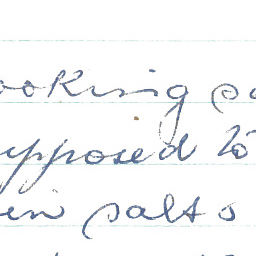 ooking sa
upposed to
in salts